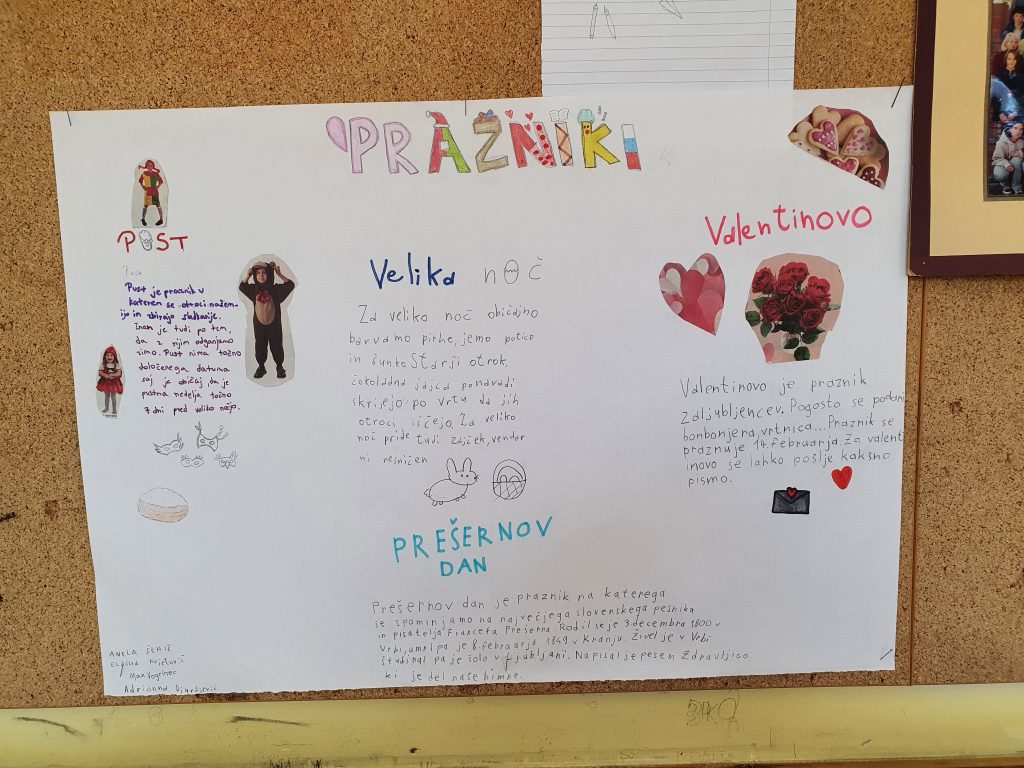 PRAZNIKI
PUST
Pust.
Pust je praznik v
katerem se otroci našem-
ijo in zbirajo sladkarije.
Znan je tudi po tem,
da z njim odganjamo
zimo. Pust nima točno
določenega datuma
saj je običaj, da je
pustna nedelja točno
7 dni pred veliko nočjo.
Velika noč
Za veliko noč običajno
barvamo pirhe, jemo potico
in šunko Starji otrok,
čokoladna jajca ponavadi
skrijejo po vrtu da jih
otroci iščejo. Za veliko
noč pride tudi zajček, vendar
ni resničen
Valentinovo
Valentinovo je praznik
zaljubljencev. Pogosto se podari
bonbonjera, vrtnica... Praznik se
praznuje 14. februarja. Za valent
inovo se lahko pošlje kakšno
pismo.
PREŠERNOV
DAN
Prešernov dan je praznik na katerega
se spominjamo na največjega slovenskega pesnika
in pisatelja Franceta Prešerna. Rodil se je 3. decembra 1800 v
Vrbi, umrl pa je 8. februarja 1849 v Kranju. Živel je v Vrbi
študiral pa je šolo v Ljubljani. Napisal je pesem Zdravljico
ki je del naše himne.
ANELA
Max Vogelnec
Adrianna